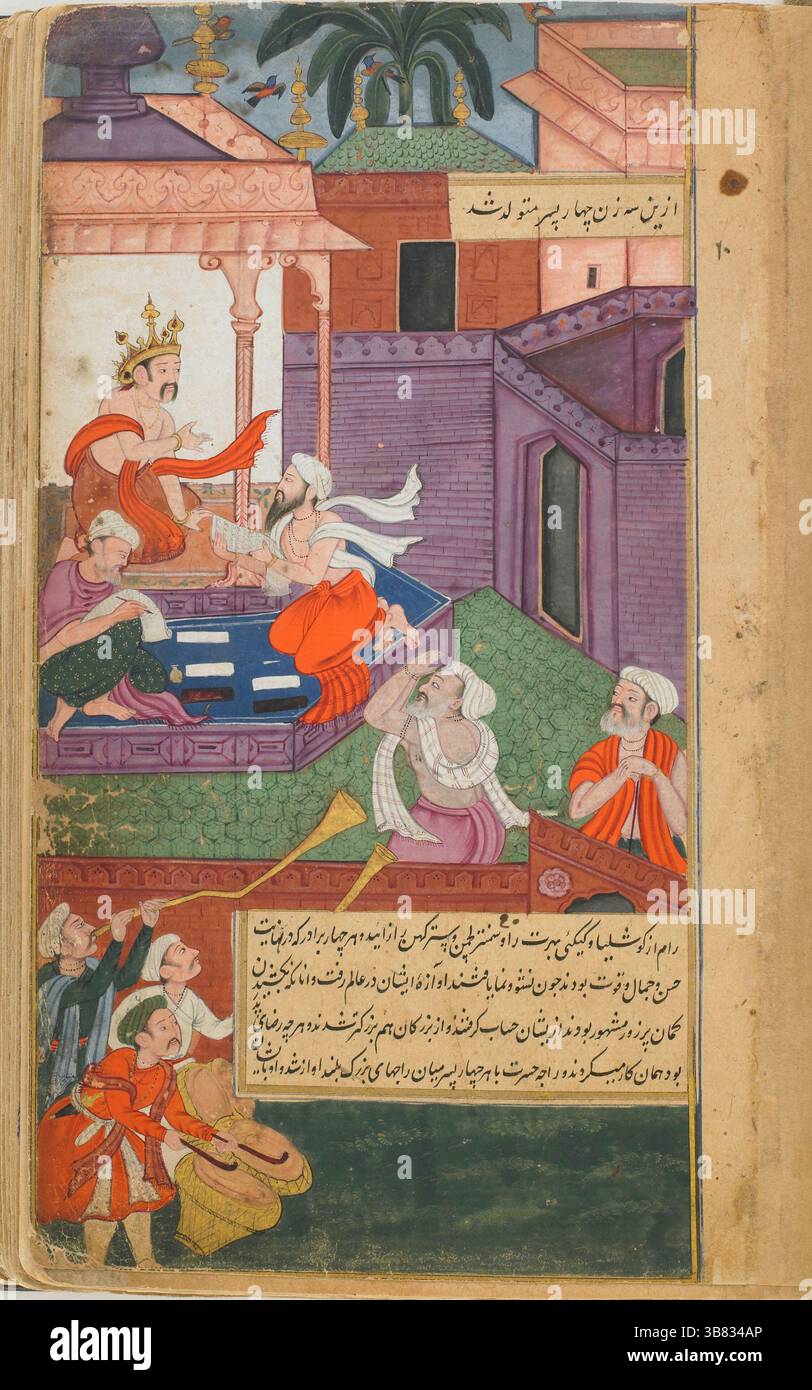 ازین سه زن چهار پسر متولد شد
۱۰
رام از کوشلیا و کیکئی بهرت را و سمنتر لچمن و پسر کهن را زایید و هر چهار برادر که در نهایت
حسن و جمال و قوت بودند چون نشو و نما یافتند آوازهٔ ایشان در عالم رفت و انانکه بکشیدن
کمان پر زور مشهور بودند از یشان حساب گرفتند و از بزرکان هم بزرکتر شدند و هرچه رضای پدر
بود همان کار میکردند و راجه جسرت با هر چهار پسر میان راجهای بزرک بلند اواز شد و او با ایشان
a
alamy
Image ID: 3B834AP
www.alamy.com